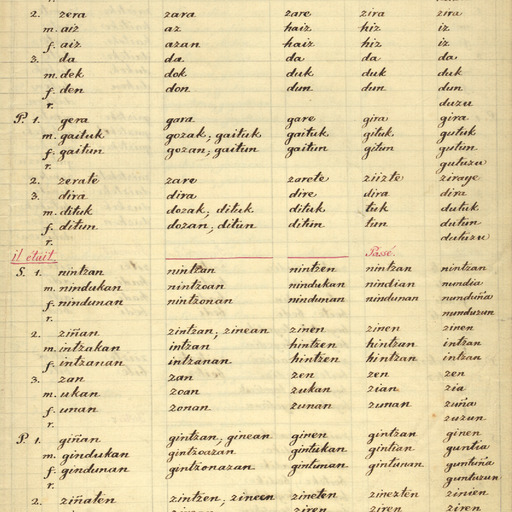 2. zera zara zare zira zira
m. aiz az haiz hiz iz
f. aiz azan haiz hiz iz
3. da da da da da
m. dek dok duk duk duk
f. den don dun dun dun
r. duzu
P. 1. gera gara gare gira gira
m. gaituk gozak; gaituk gaituk gituk gutuk
f. gaitun gozan; gaitun gaitun gitun gutun
r. gutuzu
2. zerate zare zarete ziizte ziraye
3. dira dira dire dira dira
m. dituk dozak; dituk dituk tuk dutuk
f. ditun dozan; ditun ditun tun dutun
r. dutuzu
il était. Passé.
S. 1. nintzan nintzan nintzen nintzan nintzan
m. nindukan nintzoan nindukan nindian nundia
f. nindunan nintzonan nindunan nindunan nunduña
r. nunduzun
2. ziñan zintzan; zinean zinen zinen zinen
m. intzakan intzan hintzen hintzan intzan
f. intzanan intzanan hintzen hintzan intzan
3. zan zan zen zen zen
m. ukan zoan zukan zian zia
f. unan zonan zunan zunan zuña
r. zuzun
P. 1. giñan gintzan; ginean ginen gintzan ginen
m. gindukan gintzoazan gintukan gintian guntia
f. gindunan gintzonazan gintunan gintunan guntuña
r. guntuzun
2. ziñaten zintzen; zineen zineten zinezten zinien
ziren ziren ziren